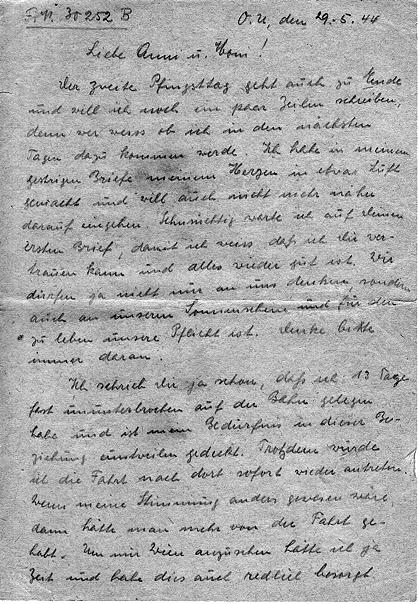 F.P.N. 30 252 B
O.U., den 29.5.44
Liebe Anni u. Mom!
Der zweite Pfingsttag geht auch zu Ende
und will ich noch ein paar Zeilen schreiben,
denn wer weiss ob ich in den nächsten
Tagen dazu kommen werde. Ich habe in meinem
gestrigen Briefe meinem Herzen in etwas Luft
gemacht und will auch nicht mehr näher
darauf eingehen. Sehnsüchtig warte ich auf deinen
ersten Brief, damit ich weiss daß ich dir ver-
trauen kann und alles wieder gut ist. Wir
dürfen ja nicht nur an uns denken sondern
auch an unseren Sonnenschein und für den
zu leben unsere Pflicht ist. Denke bitte
immer daran.
Ich schrieb dir ja schon, daß ich 13 Tage
fast ununterbrochen auf der Bahn gelegen
habe und ist mein Bedürfnis in dieser Be-
ziehung einstweilen gedeckt. Trotzdem würde
ich die Fahrt nach dort sofort wieder antreten.
Wenn meine Stimmung anders gewesen wäre,
dann hätte man mehr von der Fahrt ge-
habt. Um mir Wien anzusehen hatte ich ja
Zeit und habe dies auch redlich besorgt